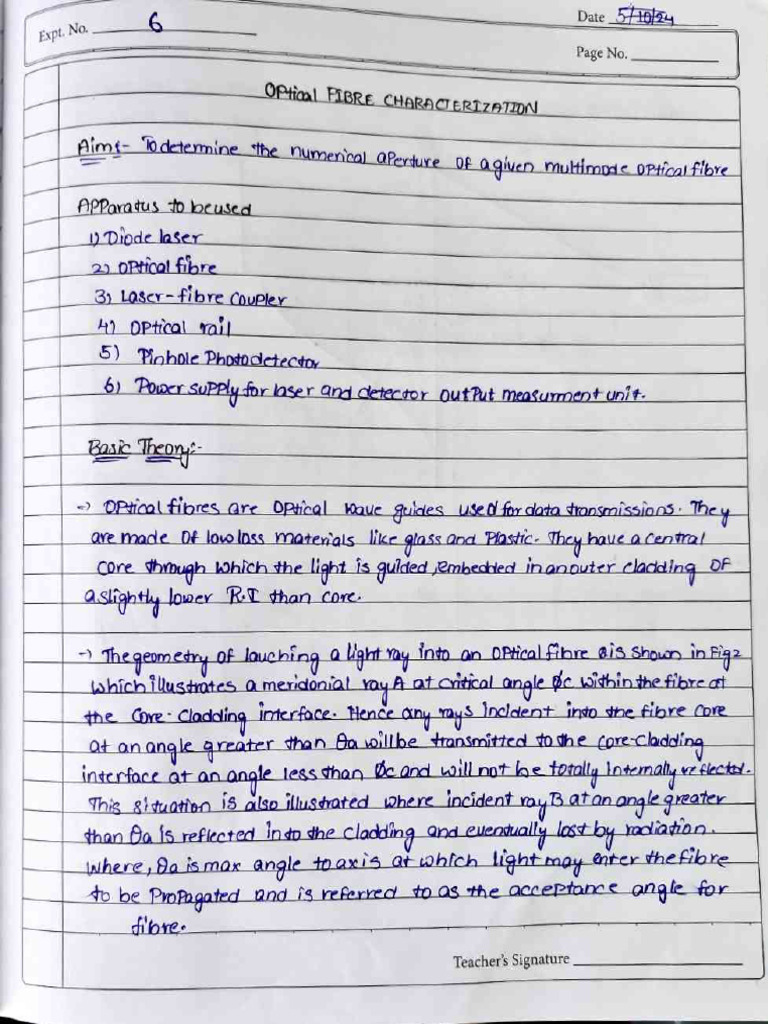 Expt. No. 6
Date 5/10/24
Page No.
OPtical FIBRE CHARACTERIZATION
Aim:- To determine the numerical aperture of a given multimode optical fibre
APParatus to be used
1) Diode laser
2) Optical fibre
3) Laser-fibre coupler
4) Optical rail
5) Pinhole Photodetector
6) Power supply for laser and detector output measurment unit.
Basic Theory:-
-> Optical fibres are optical wave guides used for data transmissions. They
are made of low loss materials like glass and Plastic. They have a central
core through which the light is guided, embedded in an outer cladding OF
a slightly lower R.I than core.
-> The geometry of lauching a light ray into an optical fibre is shown in Fig 2
which illustrates a meridonial ray A at critical angle Øc within the fibre at
the core-cladding interface. Hence any rays incident into the fibre core
at an angle greater than θa will be transmitted to the core-cladding
interface at an angle less than Øc and will not be totally internally reflected.
This situation is also illustrated where incident ray B at an angle greater
than θa is reflected into the cladding and eventually lost by radiation.
Where, θa is max angle to axis at which light may enter the fibre
to be Propagated and is referred to as the acceptance angle for
fibre.
Teacher's Signature